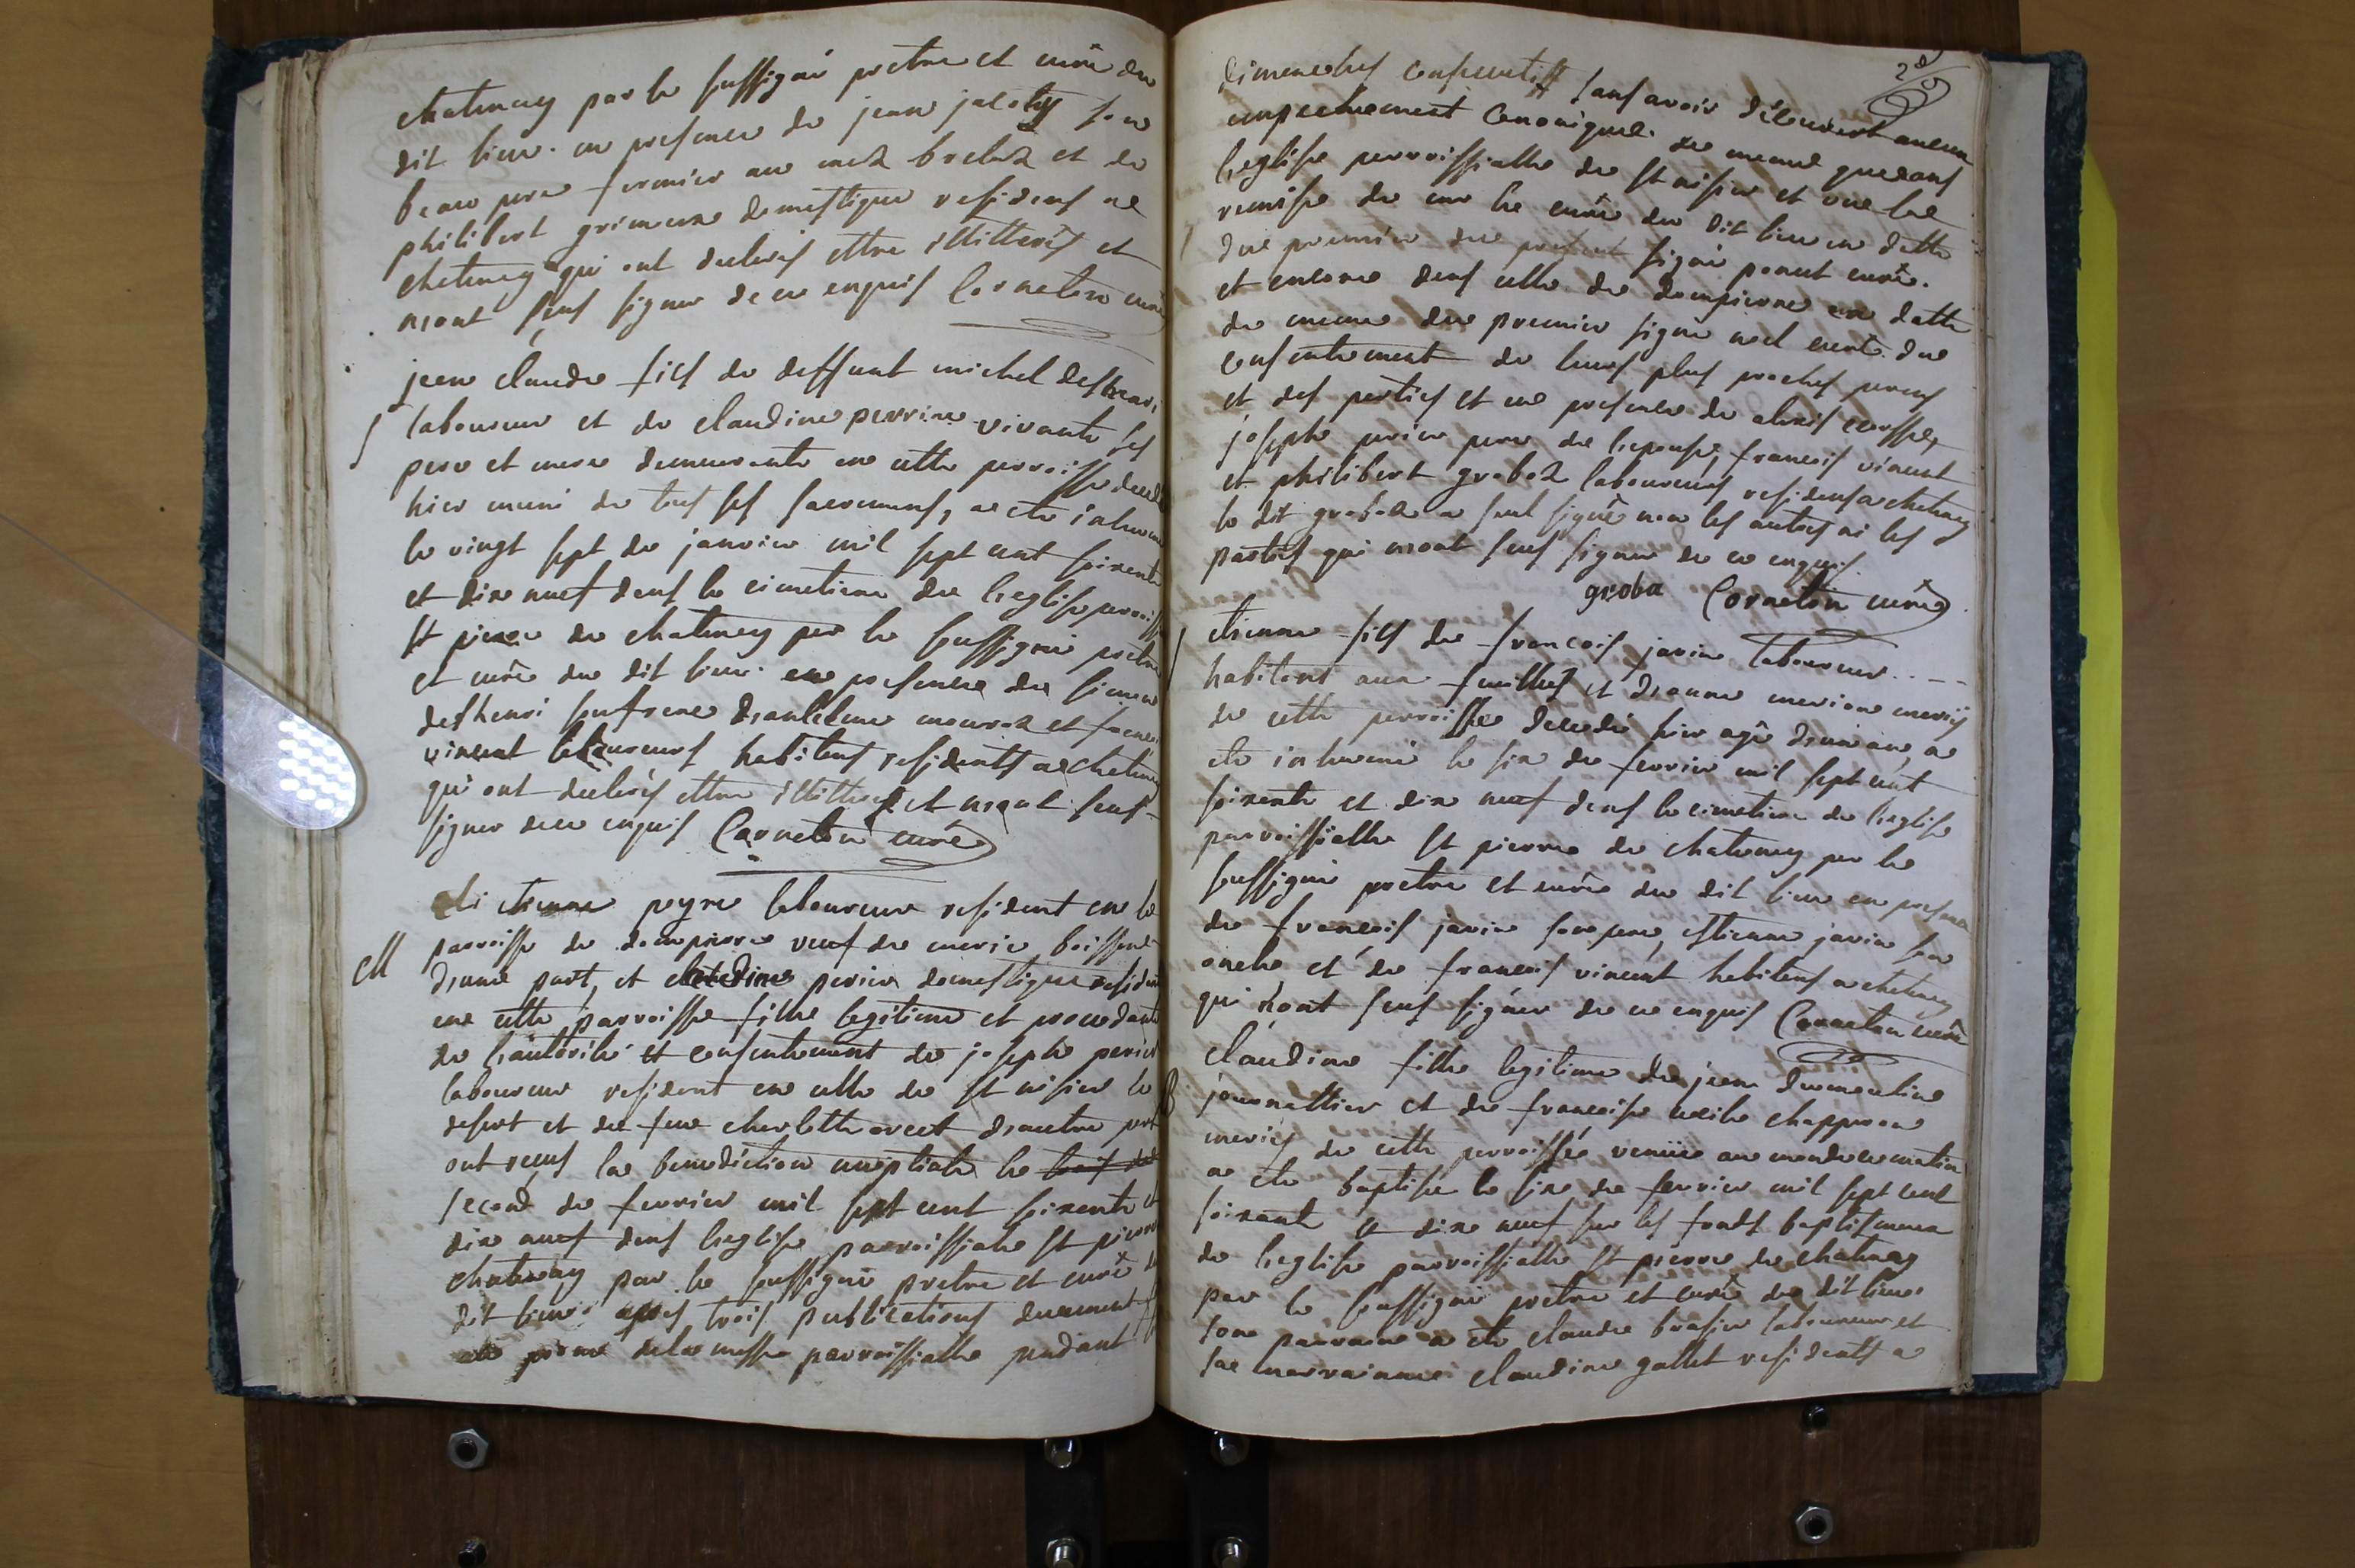 chatenay par le soussigné pretre et curé du
dit lieu. en presence de jean jacolty son
beau pere fermier au mas brebez et de
philibert domestique residens a
chatenay qui ont declarés ettre illitterés et
n'ont sçus signer de ce enquis Corneton curé
jean claude fils de deffunt michel deshenri
laboureur et de claudine perrine vivante ses
pere et mere demeurante en cette parroisse decedé
hier muni de tous ses sacremens, a ete inhumé
le vingt sept de janvier mil sept cent soixente
et dix neuf dans le cimetiere de l'eglise parroiss
St pierre de chatenay par le soussigné pretre
et curé du dit lieu. en presence de simon
deshenri son frere d'antoine et franc
vincent laboureurs habitens residents a chatenay
qui ont declarés ettre illitterés et n'ont sçus
signer de ce enquis Corneton curé
M
etienne peyre laboureur resident en la
parroisse de dompierre veuf de marie
d'une part, et claudine perier domestique residente
en cette parroisse fille legitime et procedante
de l'autorité et consentement de josephe perier
laboureur resident en celle de St nisier le
desert et de feue charlotte d'autre part
ont reçus la benediction nuptiale le
second de fevrier mil sept cent soixente et
dix neuf dans l'eglise parroissiale St pierre
chatenay par le soussigné pretre et curé du
dit lieu apres trois publications duement
au prone de la messe parroissialle pendant
dimenches consecutifs sans avoir découvert aucun
empechement canonique. de meme que dans
l'eglise parroissialle de St nisier et vue la
remise de mr le curé du dit lieu en datte
du premier du present signé curé.
et encore dans celle de dompierre en datte
de meme du premier signé curé. du
consentement de leurs plus proches parens
et des parties et en presence de
josephe perier pere de l'epouse, francois vincent
et philibert grobaz laboureurs residens a chatenay
le dit grobaz a seul signé non les autres ni les
parties qui n'ont sçus signer de ce enquis.
groba Corneton curé
etienne fils de francois javin laboureur
habitant aux feuilles et d'anne mariés
de cette parroisse decedé hier agé d'un an, a
ete inhumé le six de fevrier mil sept cent
soixente et dix neuf dans le cimetiere de l'eglise
parroissialle St pierre de chatenay par le
soussigné pretre et curé du dit lieu en presence
de francois javin son pere, ettienne javin son
oncle et de francois vincent habitens a chatenay
qui n'ont sçus signer de ce enquis Corneton curé
B
claudine fille legitime de jean dumoulin
journallier et de francoise chapperon
mariés de cette parroisse venue au monde ce matin
a ete baptisé le six de fevrier mil sept cent
soixant et dix neuf sur les fonds baptismeaux
de l'eglise parroissialle St pierre de chatenay
par le soussigné pretre et curé du dit lieu.
son parrain a ete claude brasier laboureur et
sa marrainne claudine gallet residents a